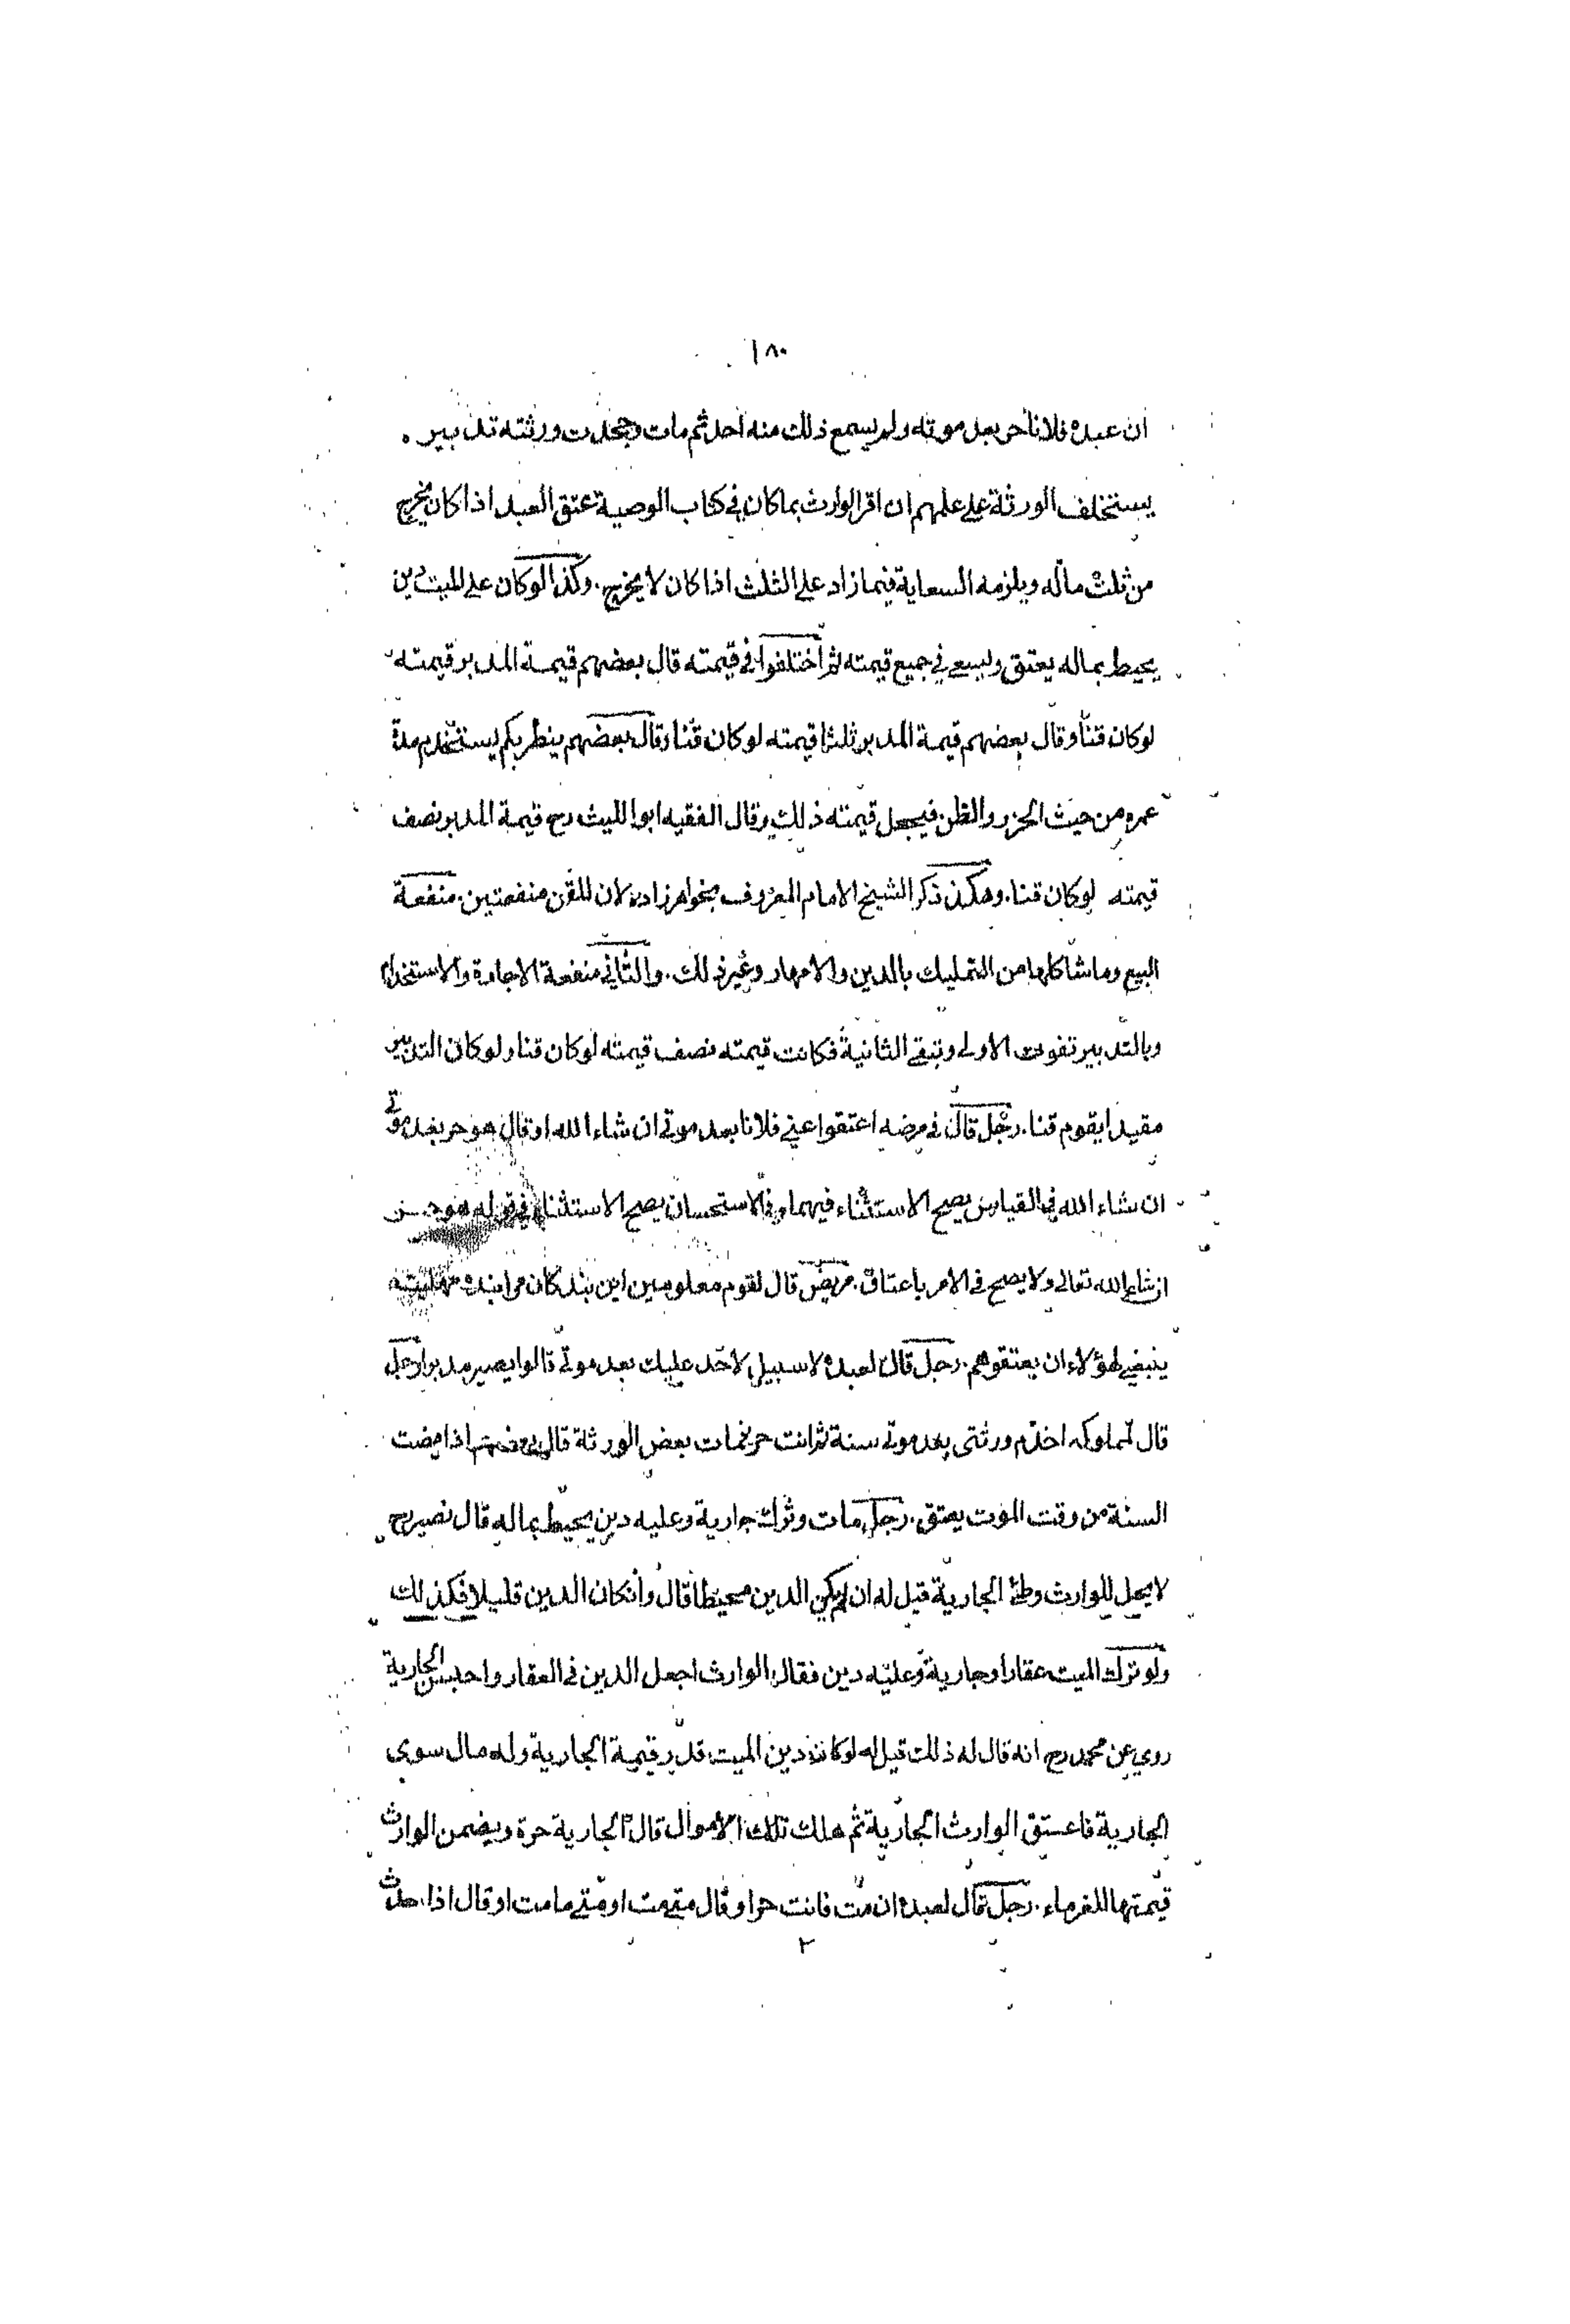 ١٨٠
ان عبده فلانا حر بعد موته ولم يسمع ذلك منه احد ثم مات وجحدت ورثته تدبير ه
يستحلف الورثة على علمهم ان اقر الوارث بما كان في كتاب الوصية عتق العبد اذا كان يخرج
من ثلث ماله ويلزمه السعاية فيما زاد على الثلث اذا كان لا يخرج. وكذا لو كان على الميت دين
يحيط بماله يعتق ويسعى في جميع قيمته ثم اختلفوا في قيمته قال بعضهم قيمة المدبر قيمته
لو كان قنا وقال بعضهم قيمة المدبر ثلثا قيمته لو كان قنا وقال بعضهم ينظر بكم يستخدم مدة
عمره من حيث الحزر والظن فيجعل قيمته ذلك وقال الفقيه ابو الليث رح قيمة المدبر نصف
قيمته لو كان قنا. وهكذ ذكر الشيخ الامام المعروف بخواهرزاده لان للقن منفعتين. منفعة
البيع وما شاكلها من التمليك بالدين والامهار وغير ذلك. والثاني منفعة الاجارة والاستخدام
وبالتدبير تفوت الاولى وتبقى الثانية فكانت قيمته نصف قيمته لو كان قنا ولو كان التدبير
مقيدا يقوم قنا. رجل قال في مرضه اعتقوا عني فلانا بعد موتي ان شاء الله او قال هو حر بعد موتي
ان شاء الله في القياس يصح الاستثناء فيهما وفي الاستحسان يصح الاستثناء في قوله هو حر
ان شاء الله تعالى ولا يصح في الامر باعتاق. مريض قال لقوم معلومين اين بند كان مرا
ينبغي لهؤلاء ان يعتقوهم. رجل قال لعبده لا سبيل لاحد عليك بعد موتي قالوا يصير مدبرا رجل
قال لمملوكه اخدم ورثتي بعد موتي سنة ثم انت حر فمات بعض الورثة قال بعضهم اذا مضت
السنة من وقت الموت يعتق. رجل مات وترك جارية وعليه دين يحيط بماله قال نصير رح
لا يحل للوارث وطئ الجارية قيل له ان لم يكن الدين محيطا قال وان كان الدين قليلا فكذلك
ولو ترك الميت عقارا وجارية وعليه دين فقال الوارث اجعل الدين في العقار واحبس الجارية
روي عن محمد رح انه قال له ذلك قيل له لو كان دين الميت قدر قيمة الجارية وله مال سوى
الجارية فاعتق الوارث الجارية ثم هلك تلك الاموال قال الجارية حرة ويضمن الوارث
قيمتها للغرماء. رجل قال لعبده ان مت فانت حر او قال متى مت او متى ما مت او قال اذا حدث
٢